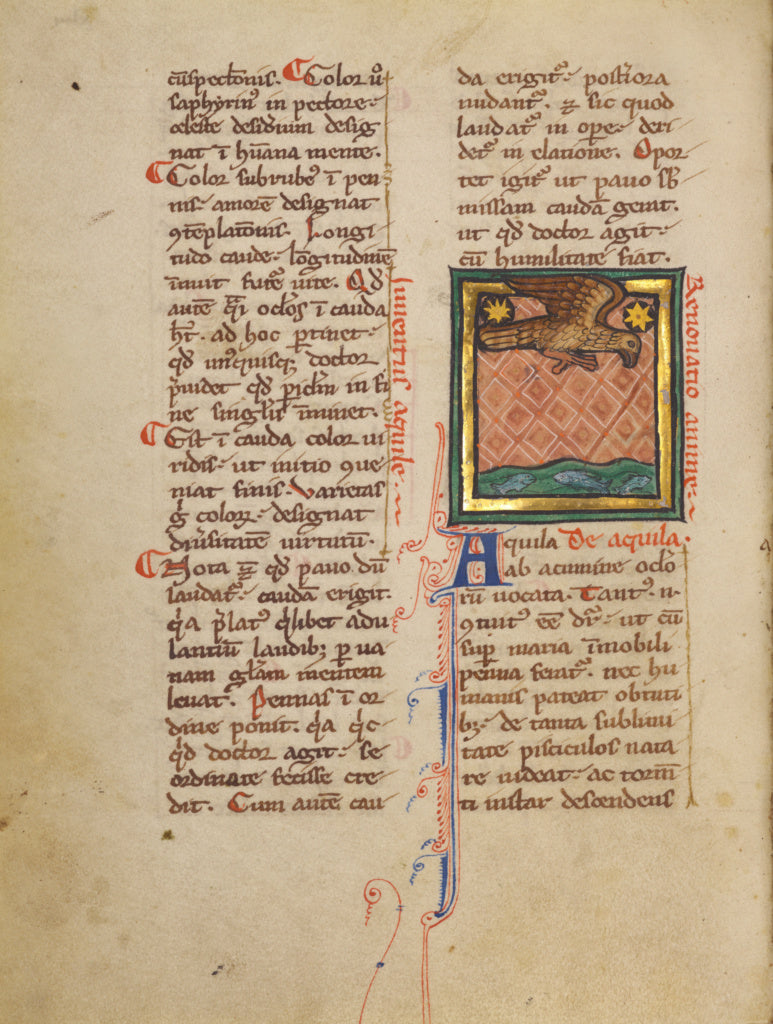 cūspectōnis. Color ũ
saphyrinꝰ in pectore
celeste desid̾ium desig
nat ī hūana mente.
Color subrubeꝰ ī pen
nis amorē designat
ꝯtēplatōnis. Longi
tudo caude longitudinē
innuit future uite. Qđ
autē ocl̓os ī cauda
h̄t. ad hoc ꝑtinet
qđ unꝰquisqꝫ doctor
p̄uidet qđ ꝑicl̓m in fi
ne singl̓is īminet.
Est ī cauda color ui
ridis ut initio ꝯue
niat finis. Varietas
g̊ colorꝝ designat
diu̾sitatē uirtutū.
Nota qđ pauo dū
laudatᷣ caudā erigit.
q̇a p̄latꝰ q̇libet adu
lantiū laudibꝫ ꝑ ua
nam gl̓am mentem
leuatᷣ. Pennas ī or
dine ponit. q̇a q̇cq̇d
doctor agit se
ordinate fecisse cre
dit. Cum autē cau
Iuuentus aquile
da erigitᷣ posťiora
nudantᷣ. ⁊ sic quod
laudatᷣ in oꝑe deri
detᷣ in elatione. Opor
tet igitᷣ ut pauo sb̄
missam caudā gerat.
ut qđ doctor agit
cū humilitate fiat.
Renouatio anime
Aquila De aquila.
ab acumine oclo
rū uocata. Tantᷣ. n.
ꝯtuitꝰ eē dr̄. ut cū
suꝑ maria īmobili
penna feratᷣ. nec hu
manis pateat obtuti
bꝫ de tanta sublimi
tate pisciculos nata
re uideat ac torm̄
ti instar descendens